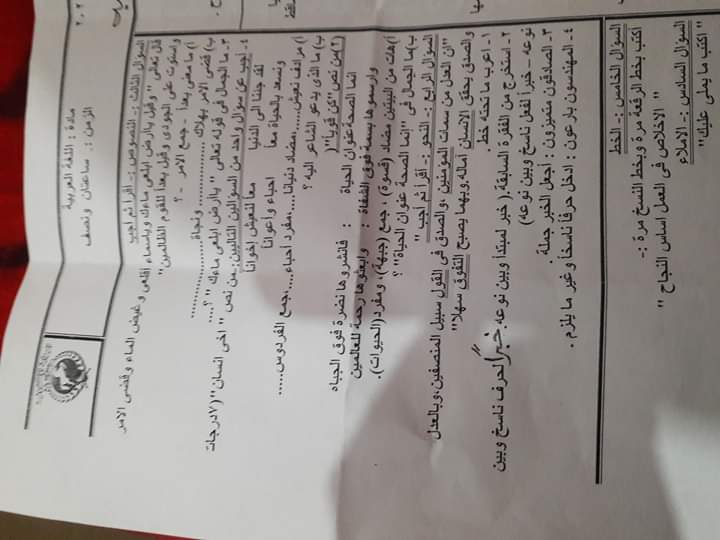 ٢٠٢
مادة : اللغة العربية
الزمن : ساعتان ونصف
السؤال الثالث :- النصوص :- أقرأ ثم أجب
قال تعالى "وقيل ياارض ابلعى ماءك وياسماء اقلعى وغيض الماء وقضى الامر
واستوت على الجودى وقيل بعدا للقوم الظالمين"
أ) ما معنى بعداً - جمع الامر - ؟
ب) قضى الامر بهلاك ............... ونجاة ...............
٣- ما الجمال فى قوله تعالى "ياارض ابلعى ماءك" ؟....
٤- أجب عن سؤال واحد من السؤالين التاليين :- من نص "اخى انسان" (٧درجات
لقد جئنا الى الدنيا معاً لنعيش إخوانا
ونسعد بالحياة معا احباء وأعوانا
أ) مرادف نعيش......مضاد دنيانا.....مفرد احباء.....جمع الفردوس......
ب) ما الذى يدعو الشاعر اليه ؟
(٢)من نص "كن قويا"(
انما الصحة عنوان الحياة : فانشروها نضرة فوق الجباه
وارسموها بسمة فوق الشفاة : وابعثوها رحمة للعالمين
أ)هات من البيتين مضاد (قسوة) ، جمع (جبهة)، ومفرد(الحيوات).
ب)ما الجمال فى "انما الصحة عنوان الحياة" ؟
السؤال الرابع :- النحو :- أقرأ ثم أجب "
"ان العدل من سمات المؤمنين ،والصدق فى القول سبيل المنصفين،وبالعدل
والصدق يحقق الانسان اماله،وبهما يصبح التفوق سهلا"
١- اعرب ما تحته خط.
٢- استخرج من الفقرة السابقة.( خبر لمبتدأ وبين نوعه. خبراً لحرف ناسخ وبين
نوعه - خبراً لفعل ناسخ وبين نوعه)
٣- الصادقون متميزون : أجعل الخبر جملة
٤- المهندسون بارعون : ادخل حرفاً ناسخاً وغير ما يلزم .
السؤال الخامس :- الخط
أكتب بخط الرقعة مرة وبخط النسخ مرة :-
" الاخلاص فى العمل اساس النجاح "
السؤال السادس :- الاملاء
" اكتب ما يملى عليك"